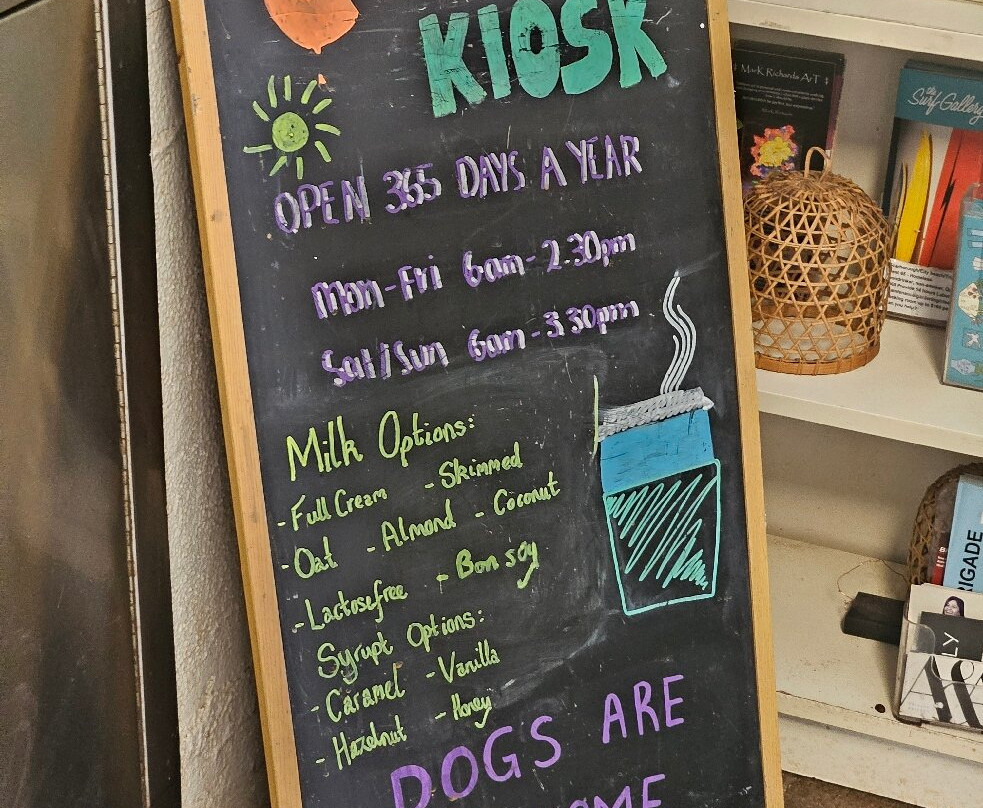 KIOSK
OPEN 365 DAYS A YEAR
Mon-Fri 6am-2.30pm
Sat/Sun 6am-3.30pm
Milk Options:
-Full Cream -Skimmed
-Oat -Almond -Coconut
-Lactosefree - Bon soy
Syrupt Options:
-Caramel -Vanilla
-Hazelnut -Honey
DOGS ARE
OME
Mark Richards ArT
the
Surf Gallery
RIGADE
LY